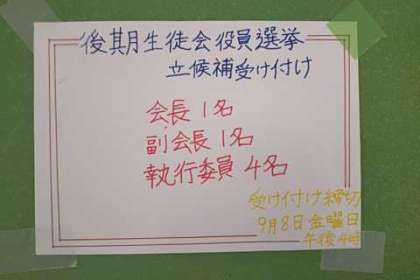 後期生徒会役員選挙
立候補受け付け
会長 1名
副会長 1名
執行委員 4名
受け付け締切
9月8日金曜日
午後4時